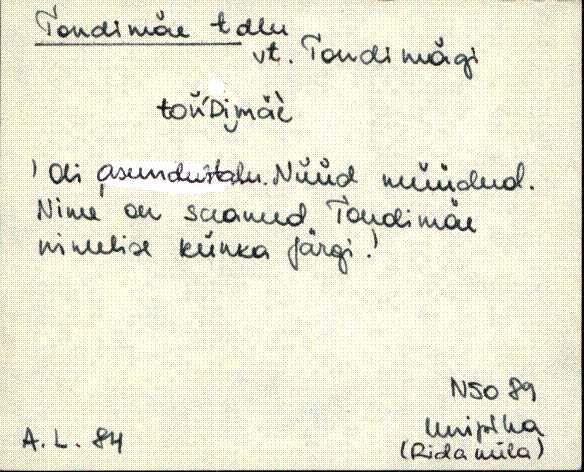 Tondimäe talu
vt. Tondimägi
tońDimäè
' Oli asundustalu. Nüüd müüdud.
Nime on saanud Tondimäe
nimelise künka järgi.'
NSO 89
A. L. 84
(Ridaküla)